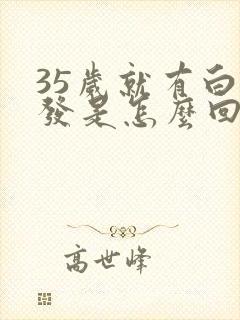 35歲就有白
發是怎麼回
高世峰